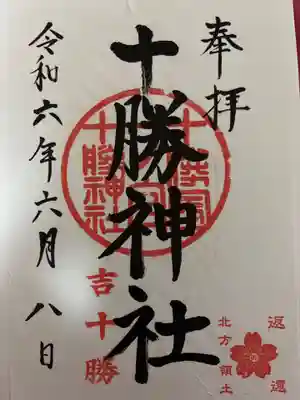 奉拝
十勝神社
十勝神社
吉十勝
令和六年六月八日
返還
北方領土